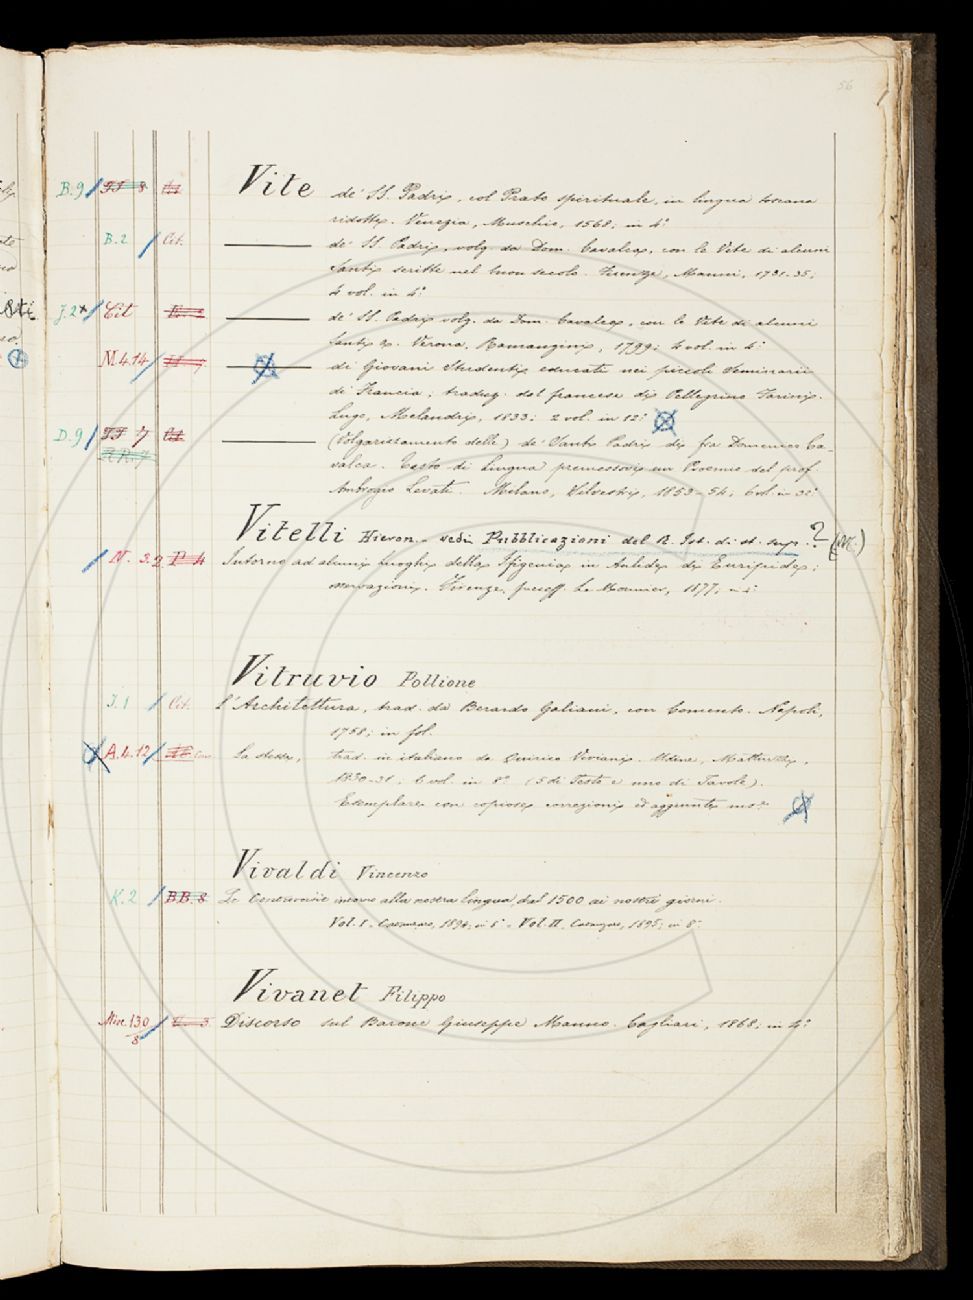 56
B.9 Vite de' SS. Padri, col Prato spirituale, in lingua toscana
ridotto. Venezia, Muschio, 1568; in 4°
B.2 Cit. de' SS. Padri, volg. da Dom. Cavalca, con le Vite di alcuni
Santi scritte nel buon secolo. Firenze, Manni, 1731-35;
4 vol. in 4°
J.2 Cit de' SS. Padri volg. da Dom. Cavalca, con le Vite di alcuni
Santi Verona, Ramanzini, 1799; 4 vol. in 4°
M.4.14 di Giovani Studenti educati nei piccoli Seminarii
di Francia; traduz. dal francese di Pellegrino Farini.
Lugo, Melandri, 1833; 2 vol. in 12°
D.9 FF 7 Cit (Volgarizzamento delle) de' Santi Padri di fra Domenico Ca-
RR.7 valca. Testo di Lingua premessovi un Proemio del prof.
Ambrogio Levati. Milano, Silvestri, 1853-54; 6 vol. in
Vitelli Hieron. - vedi Pubblicazioni del R. Ist. di st. sup. ? (M.)
N. 3.2 P 4 Intorno ad alcuni luoghi della Ifigenia in Aulide di Euripide;
osservazioni. Firenze, succ. Le Monnier, 1877; in 4°
Vitruvio Pollione
J.1 Cit. L'Architettura, trad. da Berardo Galiani, con Comento. Napoli,
1758; in fol.
A.4.12 La stessa, trad. in italiano da Quirico Viviani. Udine, Mattiuzzi,
1830-31, 6 vol. in 8° (5 di Testo e uno di Tavole).
Esemplare con copiose correzioni ed aggiunte mss.
Vivaldi Vincenzo
K.2 BB.8 Le Controversie intorno alla nostra lingua dal 1500 ai nostri giorni.
Vol. I. Catanzaro, 1894; in 8° - Vol. II. Catanzaro, 1895; in 8°
Vivanet Filippo
Misc. 130 Discorso sul Barone Giuseppe Manno. Cagliari, 1868; in 4°
8